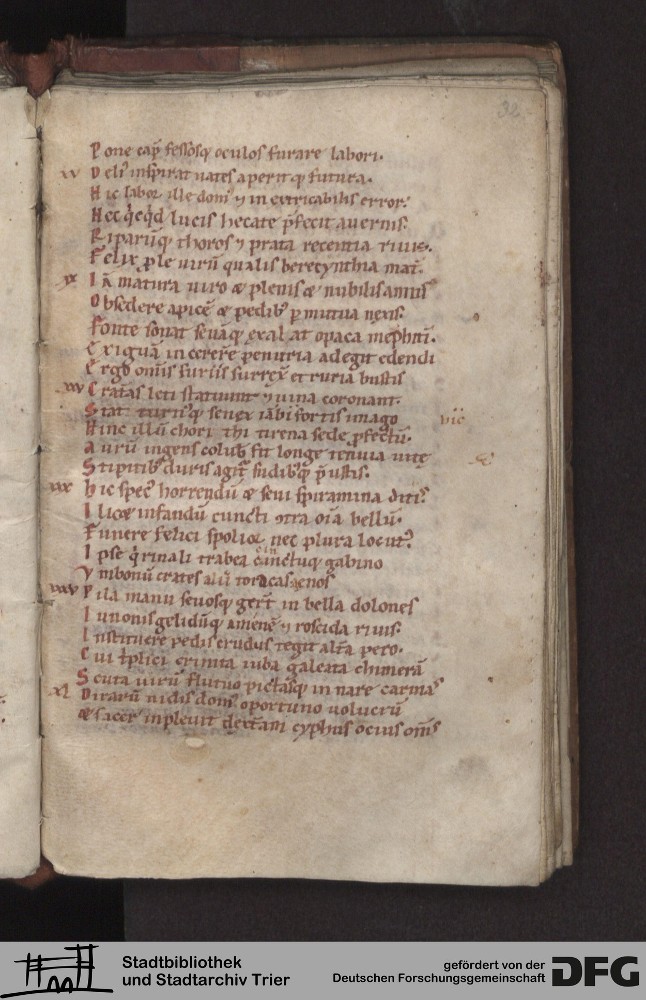 32
Pone cap̄ fessosq; oculos furare labori.
xv Deli' inspirat uates aperitq; futura.
Hic labor ille dom' ⁊ inextricabilis error.
Hec q̇cq̇d lucis hecate p̄fecit auernis.
Riparūq; thoros ⁊ prata recentia riuis.
Felix ꝓle uirū qualis berecynthia mat̄.
xx Iā matura uiro æ plenis æ nubilis annis
Obsedere apicē æ pedib' ꝑ mutua nexis.
Fonte sonat seuāq; exalat opaca mephitī.
Exiguā in cererē penuria adegit edendi
Ergo omīs furiis surrex̄ etruria iustis
xxv Crateras leti statuunt ⁊ uina coronant.
Stat turn'q; senex iābifortis imago
vii
Hinc illū chori thi tirena sede ꝓfectū.
Aurū ingens colub̄ fit longe tenuia uite
Stipitib' duris agit̄ sudib'q; p̄ustis.
xxx Hic spec' horrendū æ seui spiramina diti'
Ilicæ infandū cuncti ɔtra oīa bellū.
Funere felici spolioq; nec plura locut'
Ipse q̇rinali trabea cinctuq; gabino
Pila manu seuosq; ger̄t in bella dolones
xxxv
Iunonis gelidūq; amenē ⁊ roscida riuis.
Instituere pedis crudus tegit alt̄a pero.
Cui ṫplici crinita iuba galeata chimerā
Scuta uirū fluuio pictasq; innare carinas
xl Dirarū nidis dom' oportuno uolucrū
æ sacer inpleuit dextram cyphus ocius om̄s
Stadtbibliothek
und Stadtarchiv Trier
gefördert von der
Deutschen Forschungsgemeinschaft
DFG